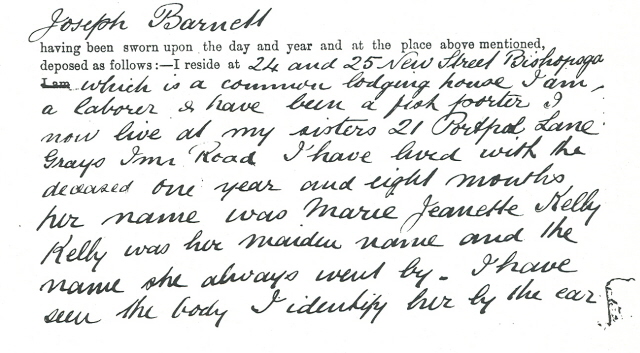 Joseph Barnett
having been sworn upon the day and year and at the place above mentioned,
deposed as follows:—I reside at 24 and 25 New Street Bishopsga
I am which is a common lodging house I am
a laborer & have been a fish porter I
now live at my sisters 21 Portpal Lane
Grays Inn Road I have lived with the
deceased one year and eight months
her name was Marie Jeanette Kelly
Kelly was her maiden name and the
name she always went by. I have
seen the body I identify her by the ear